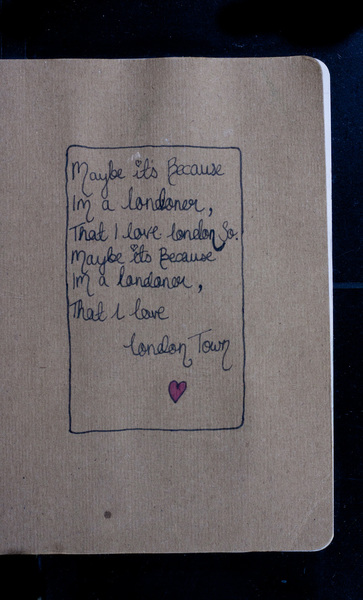 Maybe it's Because
Im a londoner,
That I love london So.
Maybe it's Because
Im a londoner,
That I love
london Town